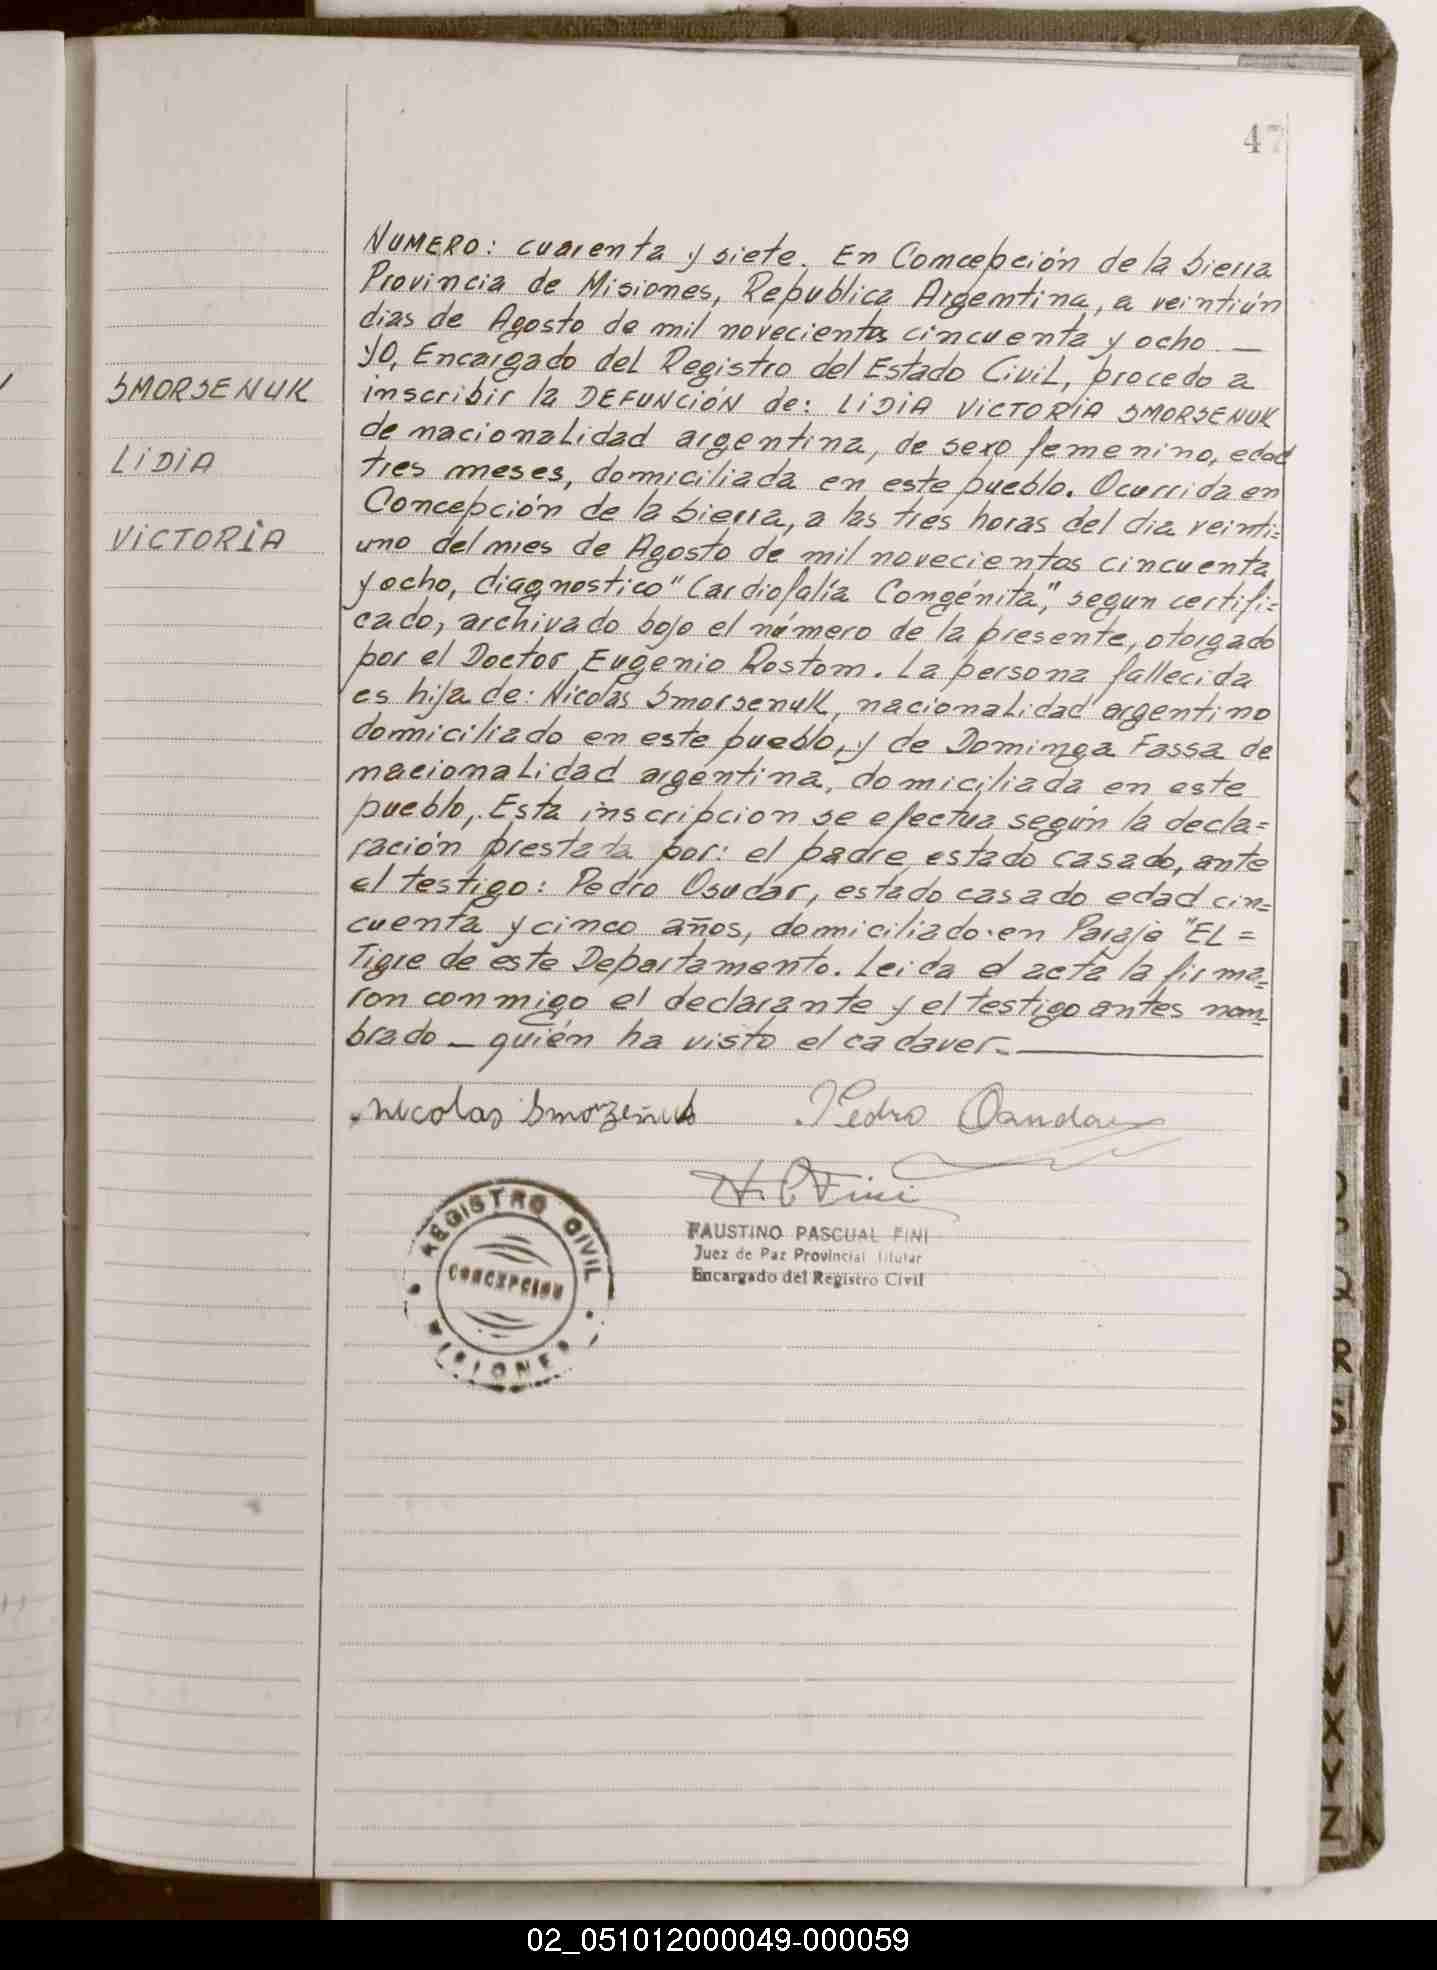 47
SMORSENUK
LIDIA
VICTORIA
NUMERO: cuarenta y siete. En Comcepción de la Sierra
Provincia de Misiones, Republica Argemtina, a veintiún
dias de Agosto de mil novecientos cincuenta y ocho. —
yo, Encargado del Registro del Estado Civil, procedo a
inscribir la DEFUNCIÓN de: LIDIA VICTORIA SMORSENUK
de nacionalidad argentina, de sexo femenino, edad
tres meses, domiciliada en este pueblo. Ocurrida en
Concepción de la Sierra, a las tres horas del dia veinti=
uno del mes de Agosto de mil novecientos cincuenta
y ocho, diagnostico "Cardiofalía Congénita", segun certifi=
cado, archivado bajo el número de la presente, otorgado
por el Doctor Eugenio Rostom. La persona fallecida
es hija de: Nicolas Smorsenuk, nacionalidad argentino
domiciliado en este pueblo, y de Dominga Fassa de
nacionalidad argentina, domiciliada en este
pueblo, Esta inscripcion se efectua según la decla=
ración prestada por: el padre estado casado, ante
el testigo: Pedro Osudar, estado casado edad cin=
cuenta y cinco años, domiciliado en Paraje "EL=
Tigre de este Departamento. Leida el acta la firma=
ron conmigo el declarante y el testigo antes nom=
brado — quién ha visto el cadaver. —
Nicolas Smorzeñuk Pedro
REGISTRO CIVIL
CONCEPCION
MISIONES
FAUSTINO PASCUAL FINI
Juez de Paz Provincial Titular
Encargado del Registro Civil
R
S
T
U
V
W
X
Y
Z
02_051012000049-000059